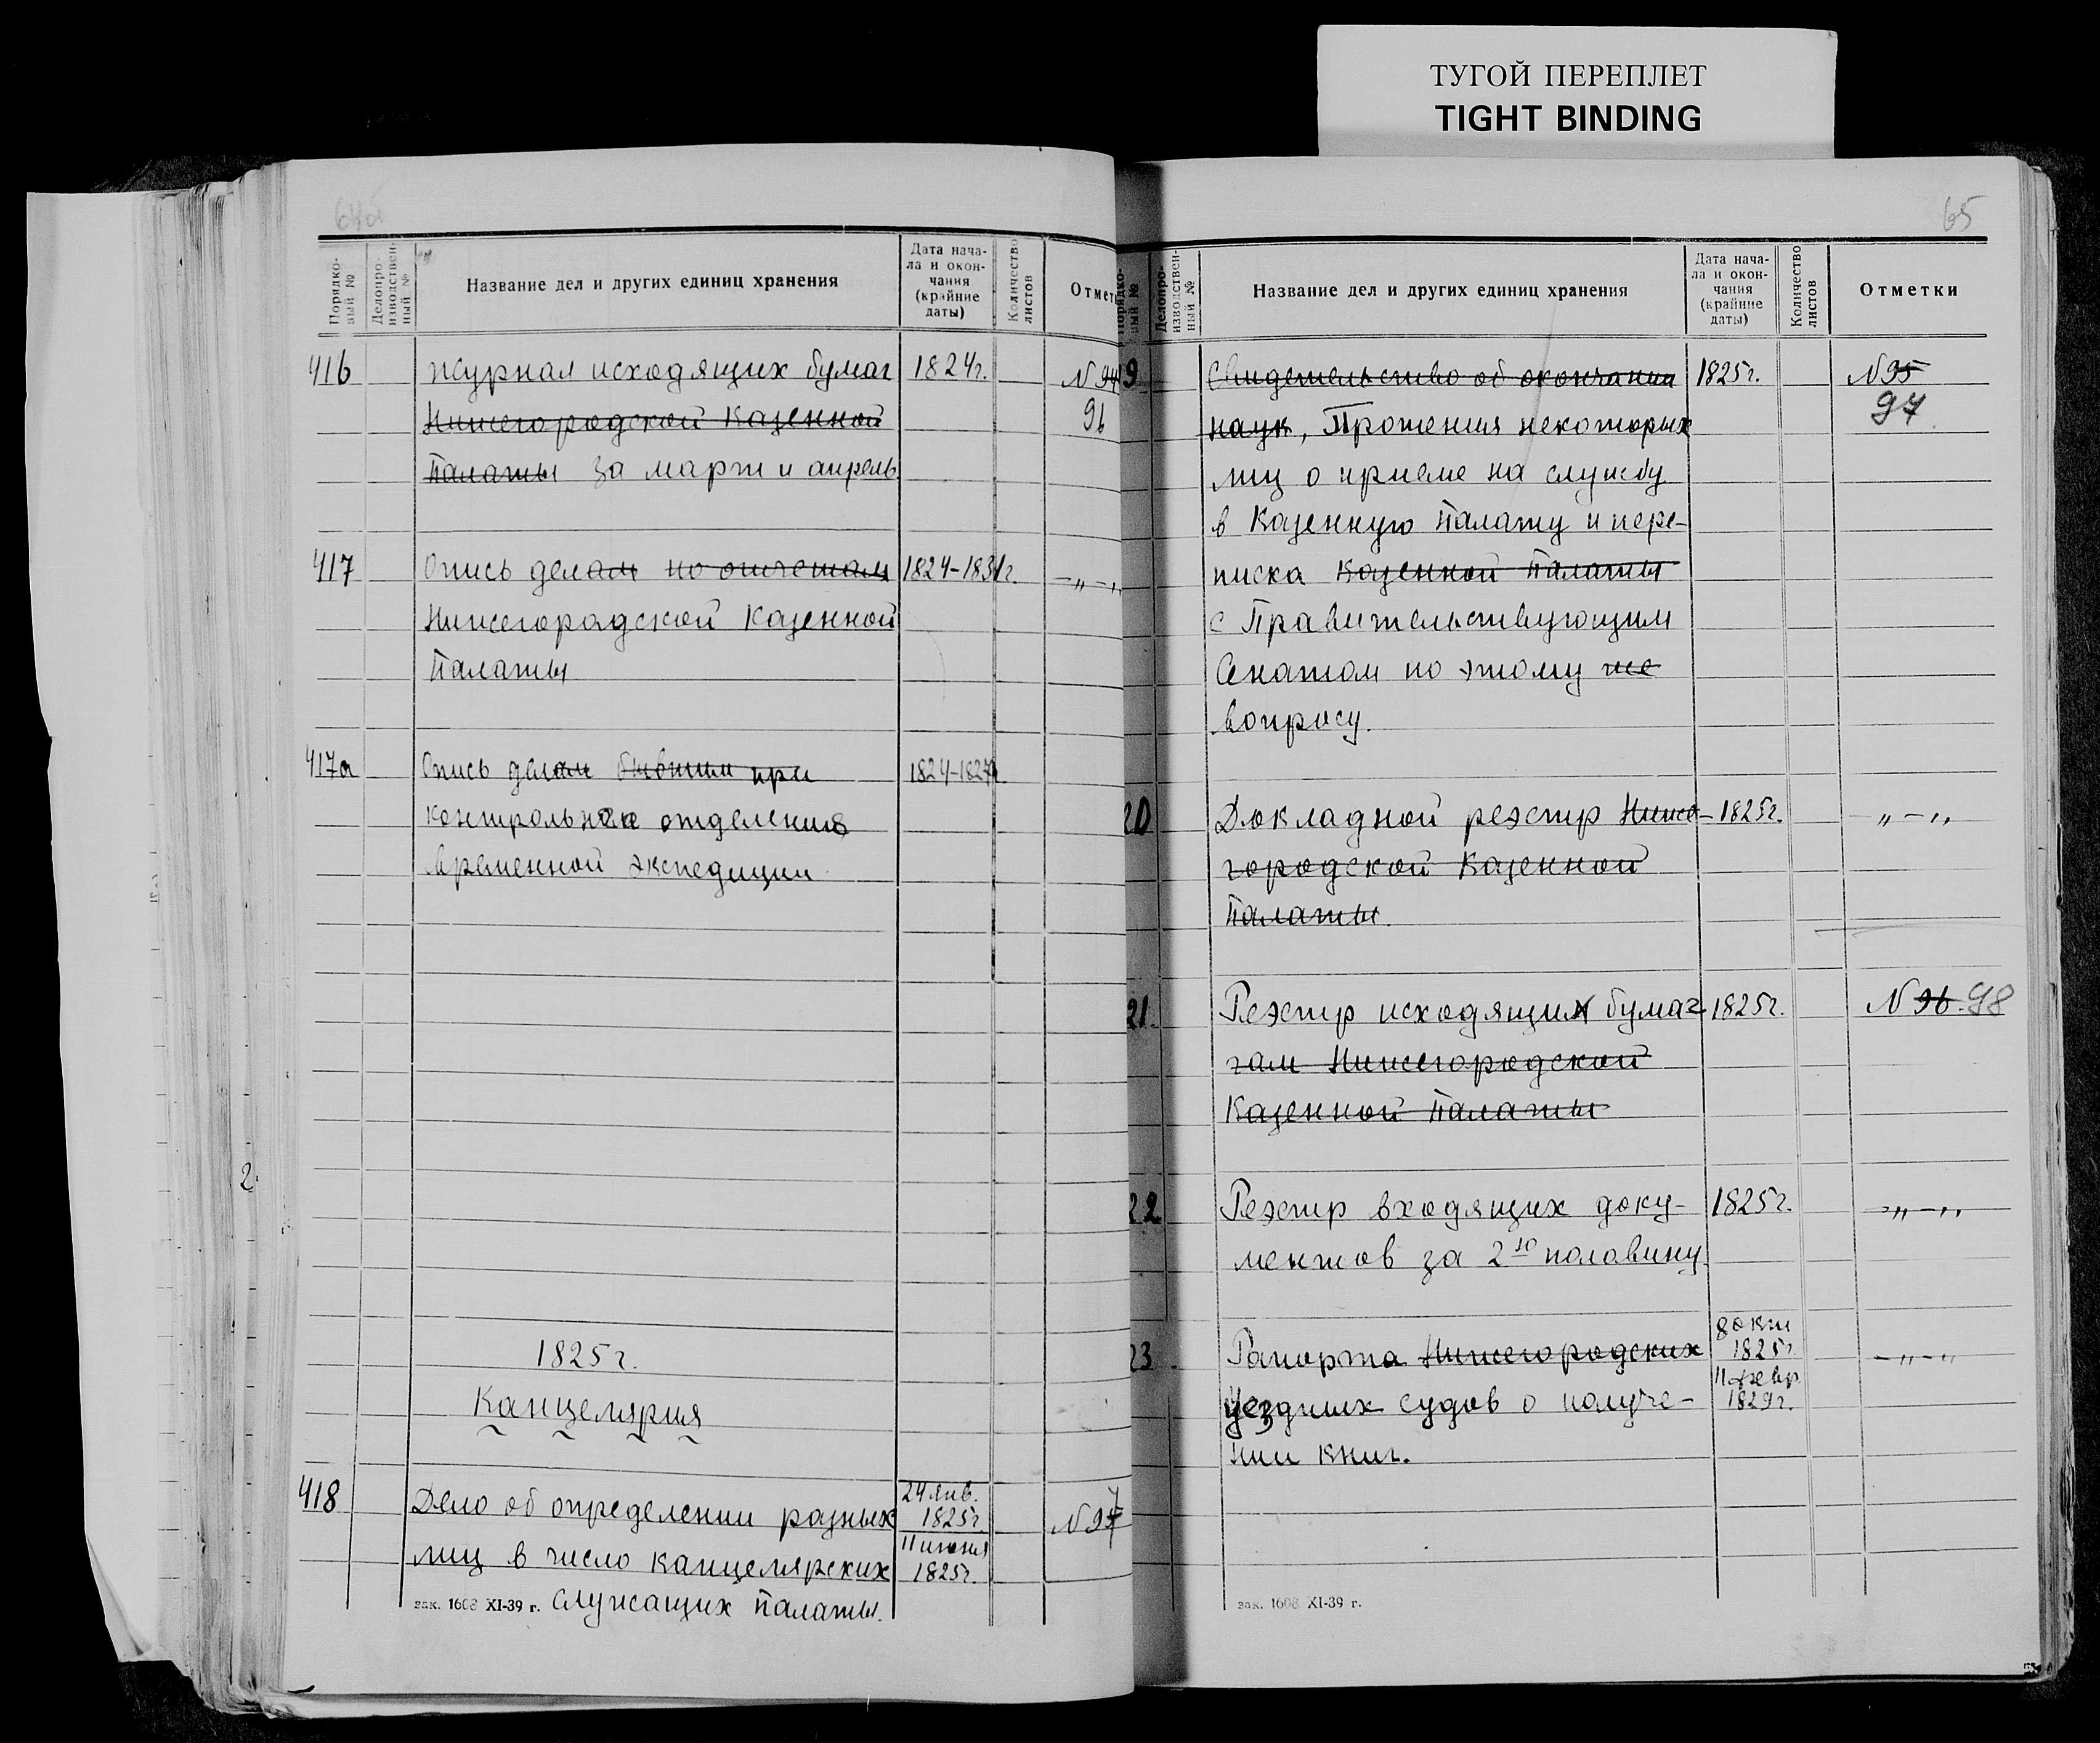 ТУГОЙ ПЕРЕПЛЕТ
TIGHT BINDING
Порядко-
вый №
Делопро-
изводствен-
ный №
Название дел и других единиц хранения
Дата нача-
ла и окон-
чания
(крайние
даты)
Количество
листов
Отмет
416 Журнал исходящих бумаг 1824г. N 94
Нижегородской Казенной 96
Палаты за март и апрель
417 Опись делам по отчетам 1824-1831г. -„-„
Нижегородской Казенной
Палаты
417а Опись делам бывшим при 1824-1827г.
контрольном отделения
временной экспедиции
1825г.
Канцелярия
418 Дело об определении разных 24 янв. 1825г. N 97
лиц в число канцелярских 11 июня 1825г.
служащих Палаты.
зак. 1608 XI-39 г.
65
Порядко-
вый №
Делопро-
изводствен-
ный №
Название дел и других единиц хранения
Дата нача-
ла и окон-
чания
(крайние
даты)
Количество
листов
Отметки
9 Свидетельство об окончании 1825г. N 95
наук, Прошения некоторых 97
лиц о приеме на службу
в Казенную Палату и пере-
писка Казенной Палаты
с Правительствующим
Сенатом по этому же
вопросу.
20 Докладной реэстр Ниже- 1825г. „-„
городской Казенной
Палаты.
21. Реэстр исходящих бумаг 1825г. N 96 98
гам Нижегородской
Казенной Палаты
22 Реэстр входящих доку- 1825г. -„-„
ментов за 2ю половину
23. Рапорта Нижегородских 8 окт 1825г. -„-„
Уездных судов о получе- 11 февр 1829г.
нии книг.
зак. 1608 XI-39 г.